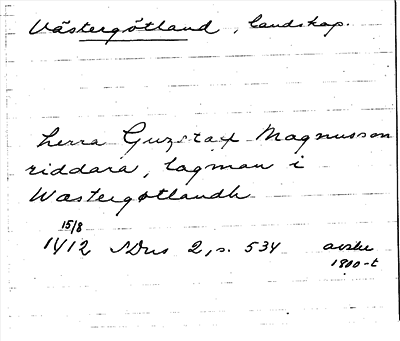 Västergötland, landskap.
herra Guzstaf Magnusson
riddara, lagman i
Wæstergøtlandh
15/8
1412 SDns 2, s. 534 avskr
1800-t